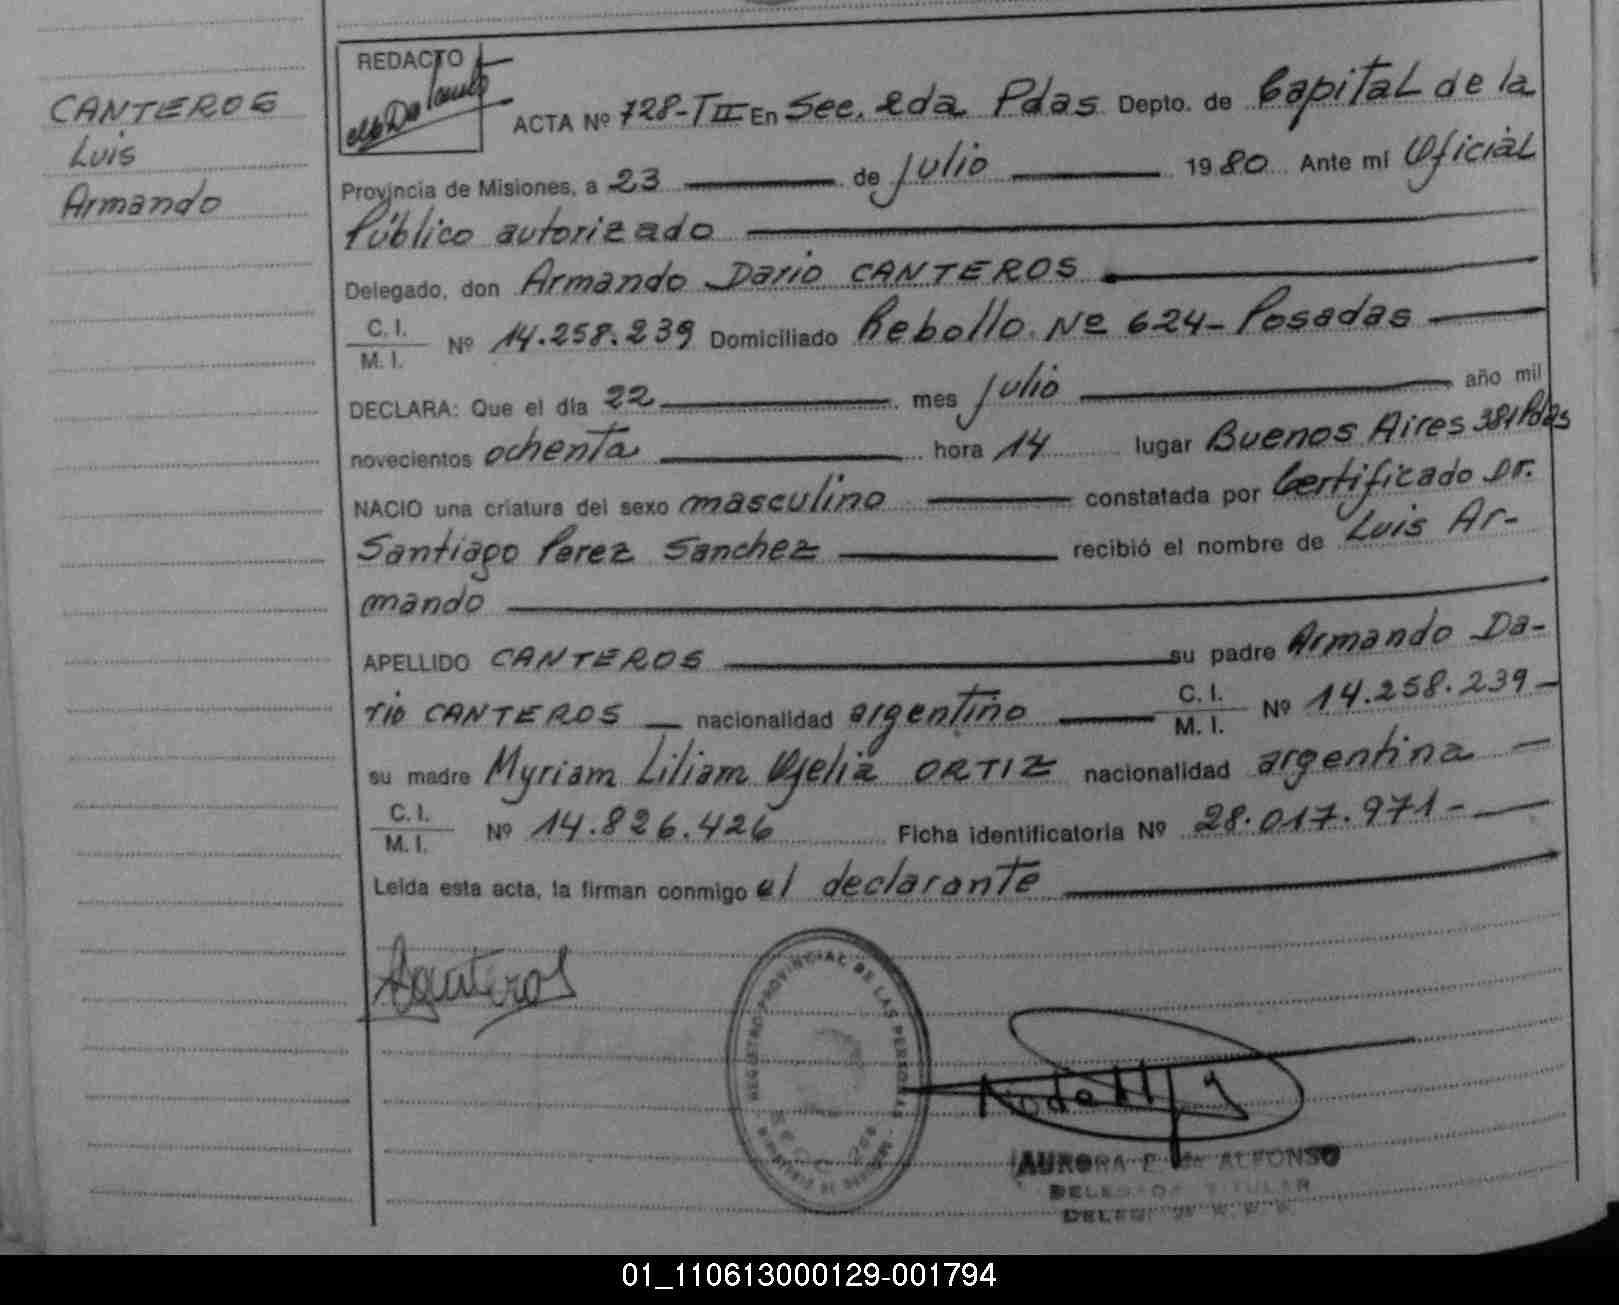 CANTEROS
Luis
Armando
REDACTO
ACTA Nº 728-TII En Sec. 2da Pdas Depto. de Capital de la
Provincia de Misiones, a 23 de Julio 1980 Ante mí Oficial
Público autorizado
Delegado, don Armando Dario CANTEROS
C. I.
M. I. Nº 14.258.239 Domiciliado Rebollo Nº 624- Posadas
DECLARA: Que el día 22 mes Julio año mil
novecientos ochenta hora 14 lugar Buenos Aires 381 Pdas
NACIO una criatura del sexo masculino constatada por Certificado Dr.
Santiago Perez Sanchez recibió el nombre de Luis Ar-
mando
APELLIDO CANTEROS su padre Armando Da-
rio CANTEROS nacionalidad argentino C. I.
M. I. Nº 14.258.239-
su madre Myriam Liliam Ofelia ORTIZ nacionalidad argentina
C. I.
M. I. Nº 14.826.426 Ficha identificatoria Nº 28.017.971-
Leída esta acta, la firman conmigo el declarante
REGISTRO PROVINCIAL DE LAS PERSONAS
AURORA E. de ALFONSO
DELEGADA TITULAR
01_110613000129-001794